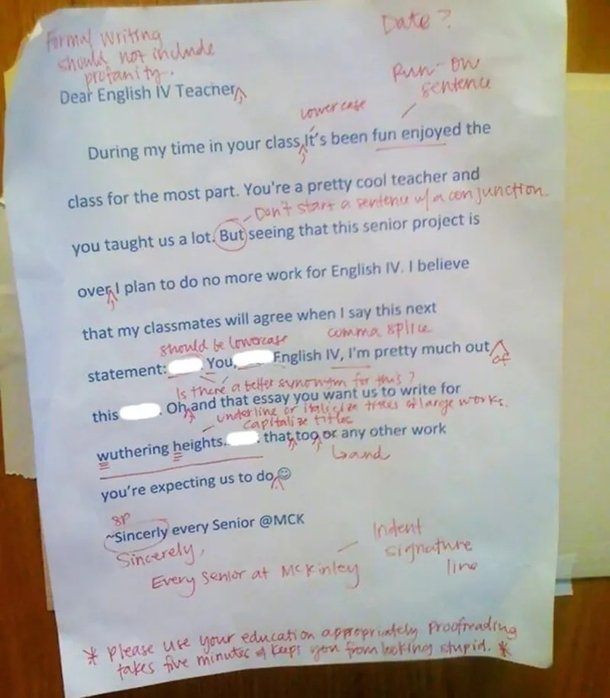 Formal Writing
should not include
profanity.
Date?
Dear English IV Teacher
Run-on
sentence
lowercase
During my time in your class It's been fun enjoyed the
class for the most part. You're a pretty cool teacher and
Don't start a sentence w/ a conjunction.
you taught us a lot. But seeing that this senior project is
over I plan to do no more work for English IV. I believe
that my classmates will agree when I say this next
should be lowercase
comma splice
statement: You, English IV, I'm pretty much out
of
Is there a better synonym for this?
this . Oh and that essay you want us to write for
underline or italicize titles of large works.
capitalize titles
wuthering heights. that too or any other work
and
you're expecting us to do ☺
sp
~Sincerly every Senior @MCK
Sincerely,
Every senior at McKinley
Indent
signature
line
* Please use your education appropriately. Proofreading
takes five minutes & keeps you from looking stupid. *